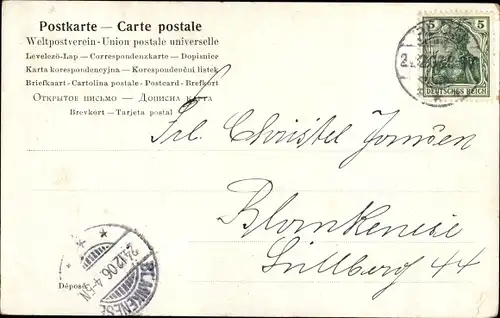 Postkarte — Carte postale
Weltpostverein - Union postale universelle
Levelező-Lap — Correspondenzkarte — Dopisnice
Karta korespondencyjna — Korespondenční lístek
Briefkaart - Cartolina postale - Postcard - Brefkort
Открытое письмо — Дописна карта
Brevkort — Tarjeta postal
5 5
DEUTSCHES REICH
Frl. Christel
Blankenese
Süllberg 44
BLANKENESE
24.12.06. 4-5N
Déposé